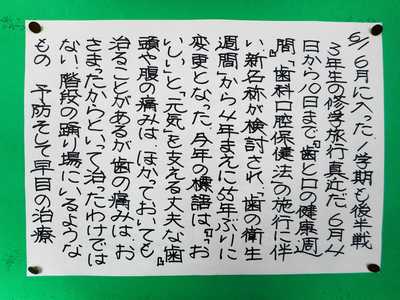 6/1 6月に入った。1学期も後半戦
3年生の修学旅行真近だ 6月4
日から10日まで『歯と口の健康週
間』『歯科口腔保健法』の施行に伴
い、新名称が検討され、『歯の衛生
週間』から4年まえに55年ぶりに
変更となった。今年の標語は『『お
いしい』と『元気』を支える丈夫な歯』
頭や腹の痛みは、ほかっておいても
治ることがあるが歯の痛みは、お
さまったからといって治ったわけでは
ない、階段の踊り場にいるような
もの 予防そして早目の治療